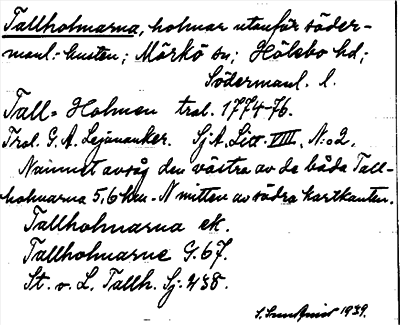 Tallholmarna, holmar utanför söder-
manl. kusten; Mörkö sn; Hölebo hd;
Södermanl. l.
Tall-Holmen trol. 1774-76.
Trol. G. A. Lejonanker. Sj A. Litt. VIII, N:o 2.
Namnet avsåg den västra av de båda Tall-
holmarna 5,6 km N mitten av södra kartkanten.
Tallholmarna ek.
Tallholmarne G. 67.
St. o. L. Tallh. Sj. 238.
1939.